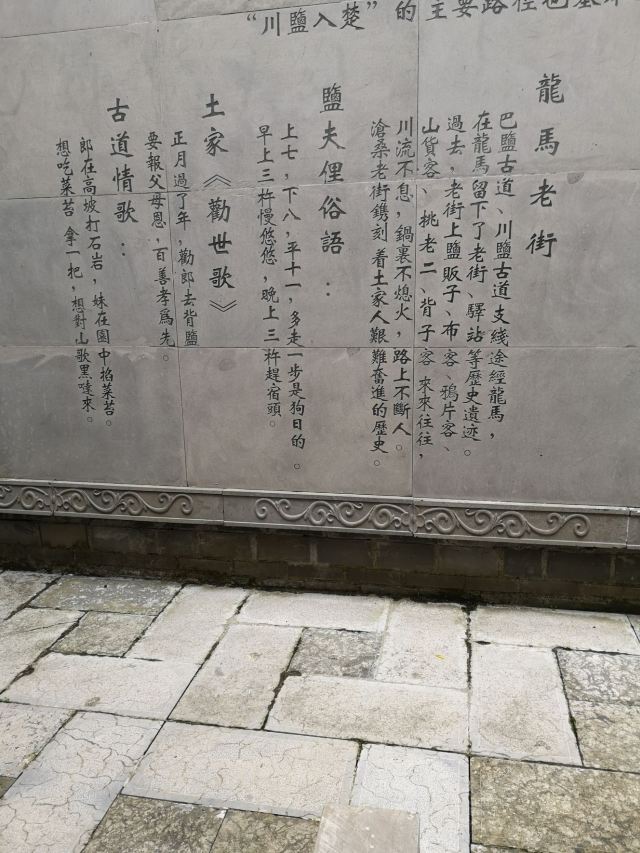 “川鹽入楚”的主要路徑也基本
龍馬老街
巴鹽古道、川鹽古道支綫途經龍馬，
在龍馬留下了老街、驛站等歷史遺迹。
過去，老街上鹽販子、布客、鴉片客、
山貨客、挑老二、背子客來來往往，
川流不息，鍋裏不熄火，路上不斷人。
滄桑老街鐫刻着土家人艱難奮進的歷史。
鹽夫俚俗語：
上七，下八，平十一，多走一步是狗日的。
早上三杵慢悠悠，晚上三杵趕宿頭。
土家《勸世歌》
正月過了年，勸郎去背鹽
要報父母恩，百善孝爲先。
古道情歌：
郎在高坡打石岩，妹在園中掐菜苔。
想吃菜苔拿一把，想對山歌黑噠來。